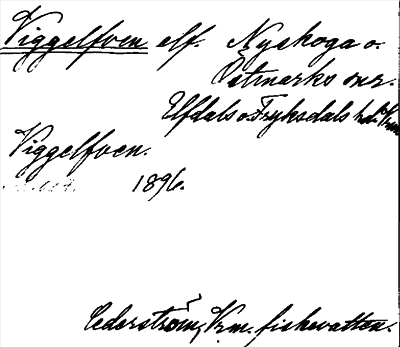 Viggelfven elf. Nyskoga o.
Östmarks snr.
Elfdals o. Fryksdals hdr Vrm
Viggelfven.
1896.
Cederström, Vrm. fiskevatten.